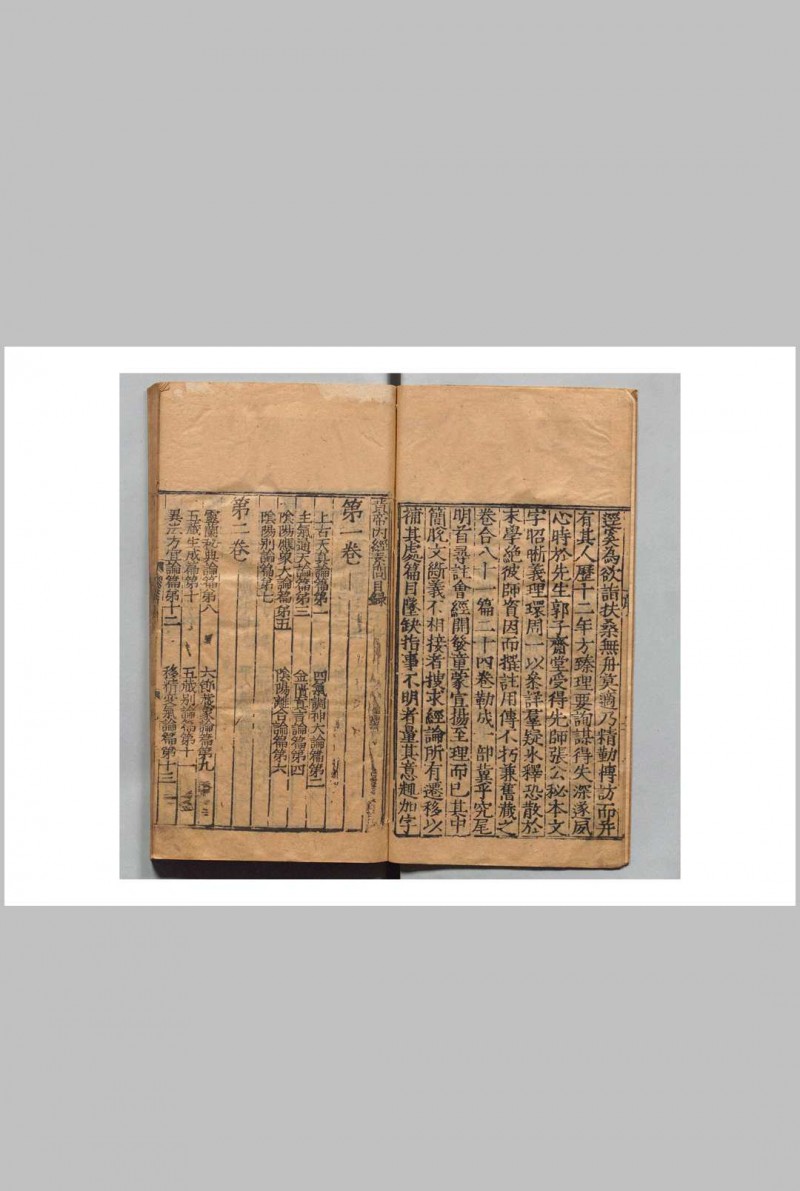 逕奚為欲詣扶桑無舟莫適乃精勤愽訪而并
有其人歷十二年方臻理要詢謀得失深遂夙
心時於先生郭子齋堂受得先師張公秘本文
字昭晰義理環周一以叅詳羣疑氷釋恐散於
末學絶彼師資因而撰註用傳不朽兼舊藏之
卷合八十一篇二十四卷勒成一部冀乎究尾
明首尋註會經開發童蒙宣揚至理而已其中
簡脫文斷義不相接者搜求經論所有遷移以
補其處篇目墜缺指事不明者量其意趣加字
黃帝内經素問目録
第一卷
上古天真論篇第一 四氣調神大論篇第二
生氣通天論篇第三 金匱真言論篇第四
陰陽應象大論篇第五 陰陽離合論篇第六
陰陽別論篇第七
第二卷
靈蘭秘典論篇第八 六節藏象論篇第九
五藏生成篇第十 五藏別論篇第十一
異法方宜論篇第十二 移精變氣論篇第十三